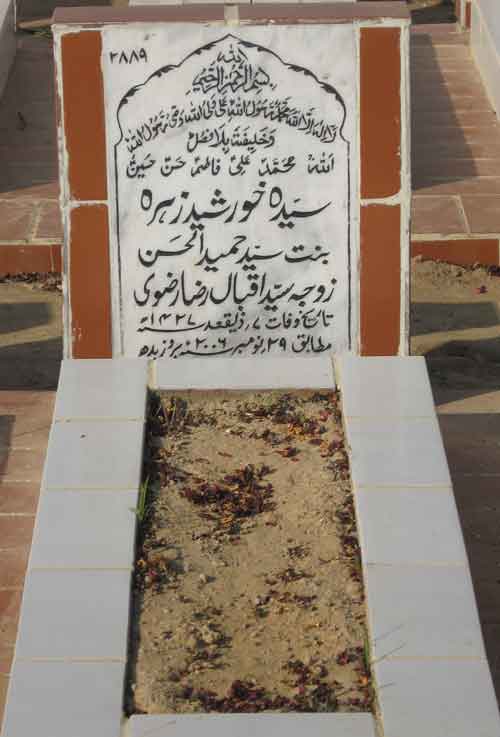 ۲۸۸۹
اللہ
بسم الله الرحمن الرحيم
لا اله الا الله محمد رسول الله علي ولي الله وصي رسول الله
وخليفته بلا فصل
اللہ محمدؐ علیؑ فاطمہؑ حسنؑ حسینؑ
سیّدہ خورشید زہرہ
بنت سیّد حمید الحسن
زوجہ سیّد اقبال رضا رضوی
تاریخ وفات ۷؍ ذیقعد ۱۴۲۷ھ
مطابق ۲۹؍ نومبر ۲۰۰۶ء بروز بدھ